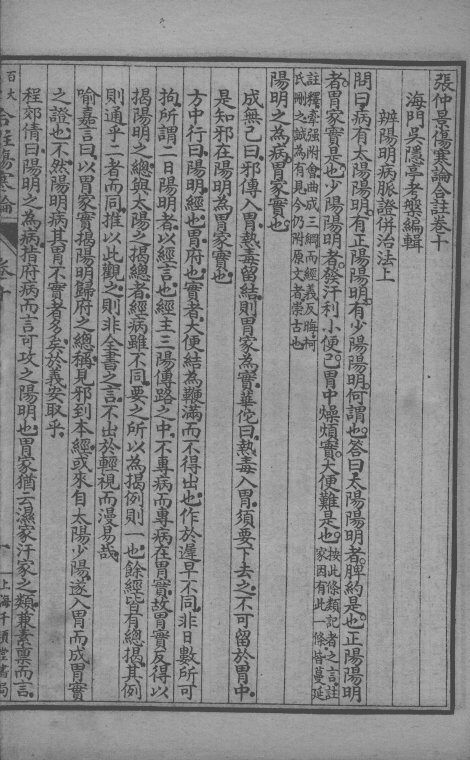 張仲景傷寒論合註卷十
海門吳隱亭考槃編輯
辨陽明病脈證併治法上
問曰病有太陽陽明有正陽陽明有少陽陽明何謂也答曰太陽陽明者脾約是也正陽陽明
者胃家實是也少陽陽明者發汗利小便已胃中燥煩實大便難是也按此條類記者之言註家因有此一條皆蔓延
註釋牽强附會曲成三綱而經義反晦柯氏刪之誠為有見今仍附原文者崇古也
陽明之為病胃家實也
成無己曰邪傳入胃熱毒留結則胃家為實華佗曰熱毒入胃須要下去之不可留於胃中
是知邪在陽明為胃家實也
方中行曰陽明經也胃府也實者大便結為鞕滿而不得出也作於遲早不同非日數所可
拘所謂一日陽明者以經言也經主三陽傳路之中不專病而專病在胃實故胃實反得以
揭陽明之總與太陽之揭總者經病雖不同要之所以為揭例則一也餘經皆有總揭其例
則通乎二者而同推以此觀之則非全書之言不出於輕視而漫易哉
喻嘉言曰以胃家實揭陽明歸府之總稱見邪到本經或來自太陽少陽遂入胃而成胃實
之證也不然陽明病其胃不實者多矣於義安取乎
程郊倩曰陽明之為病指府病而言可攻之陽明也胃家猶云濕家汗家之類兼素稟而言
合註傷寒論
卷十
一
上海千頃堂書局